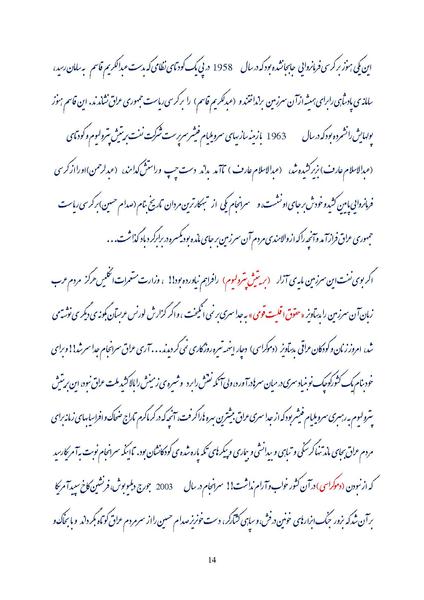 این یکی هنوز بر کرسی فرمانروایی جابجا نشده بود که در سال 1958 در پی یک کودتای نظامی که بدست عبدالکریم قاسم به سامان رسید،
سامانه ی پادشاهی را برای همیشه از آن سرزمین برانداختند و (عبدالکریم قاسم) را بر کرسی ریاست جمهوری عراق نشاندند. این قاسم هنوز
پولهایش را نشمرده بود که در سال 1963 با زمینه سازیهای سرویلیام فیشر سرپرست شرکت نفت بریتیش پترولیوم و کودتای
(عبدالسلام عارف) بزیر کشیده شد، (عبدالسلام عارف) تا آمد بداند دست چپ و راستش کدامند، (عبدالرحمن) او را از کرسی
فرمانروایی پایین کشید و خودش بر جای او نشست، و سرانجام یکی از تبهکارترین مردان تاریخ بنام (صدام حسین) بر کرسی ریاست
جمهوری عراق فراز آمد و آنچه را که از والامندی مردم آن سرزمین بر جای مانده بود یکسره در برابرگرد باد گذاشت...
اگر بوی نفت این سرزمین مایه ی آزار (بریتیش پترولیوم) را فراهم نیاورده بود!! ، وزارت مستعمرات انگلیس هرگز مردم عرب
زبان آن سرزمین را بدستاویز «حقوق اقلیت قومی» به جدا سری بر نمی انگیخت، و اگر گزارش لورنس عربستان بگونه ی دیگری نوشته می
شد، امروز زنان و کودکان عراقی بدستاویز (دموکراسی) دچار اینهمه تیره روزگاری نمی گردیدند.... آری عراق سرانجام جدا سر شد!! و برای
خود بنام یک کشور کوچک نو بنیاد سری در میان سرها در آورد، ولی آنکه نفتش را برد و شیره ی زمینش را بالا کشید ملت عراق نبود، این بریتیش
پترولیوم به رهبری سرویلیام فیشر بود که از جدا سری عراق بیشترین بهره ها را گرفت، آنچه که در گرماگرم تاراج ضحاک و افراسیابهای زمانه برای
مردم عراق بجای ماند تنها گرسنگی و تباهی و بیدانشی و بیماری و پیکرهای تکه پاره شده ی کودکانشان بود. تا اینکه سرانجام نوبت به آمریکا رسید
که از نبودن (دموکراسی) در آن کشور خواب و آرام نداشت!! سرانجام در سال 2003 جورج دبلیو بوش، فرنشین کاخ سپید آمریکا
بر آن شد که بزور جنگ ابزارهای خونین درفش، و سپاهی کشتارگر، دست خونریز صدام حسین را از سر مردم عراق کوتاه بگرداند و با بخاک و
14